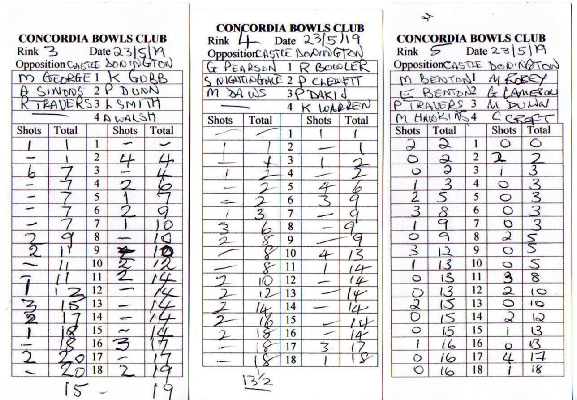 CONCORDIA BOWLS CLUB
Rink 3 Date 23/5/19
Opposition CASTLE DONINGTON
M GEORGE 1 K GUBB
A SIMONS 2 P DUNN
R TRAVERS 3 L SMITH
4 D WALSH
Shots Total Shots Total
1 1 1 - -
- 1 2 4 4
6 7 3 - 4
- 7 4 2 6
- 7 5 1 7
- 7 6 2 9
- 7 7 10
2 9 8 - 10
2 11 9 10
- 11 10 2 12
- 11 11 2 14
1 12 12 - 14
3 15 13 - 14
2 17 14 - 14
1 18 15 - 14
- 18 16 3 17
2 20 17 - 17
- 20 18 2 19
15 - 19
CONCORDIA BOWLS CLUB
Rink 4 Date 23/5/19
Opposition CASTLE DONINGTON
G PEARSON 1 R BOWLER
S NIGHTINGALE 2 P CLEWETT
M DAWS 3 P DAKIN
4 K WARREN
Shots Total Shots Total
- - 1 1 1
1 1 2 - 1
- 1 3 1 2
1 2 4 - 2
- 2 5 4 6
- 2 6 3 9
1 3 7 - 9
3 6 8 - 9
2 8 9 - 9
- 8 10 4 13
- 8 11 1 14
2 10 12 - 14
2 12 13 - 14
2 14 14 - 14
2 16 15 - 14
2 18 16 - 14
- 18 17 3 17
- 18 18 1 18
13½
CONCORDIA BOWLS CLUB
Rink 5 Date 23/5/19
Opposition CASTLE DONINGTON
M BENTON 1
E BENTON 2 G CAMERON
P TRAVERS 3 M DUNN
M HAWKINS 4 C CROFT
Shots Total Shots Total
2 2 1 0 0
0 2 2 2 2
0 2 3 1 3
1 3 4 0 3
2 5 5 0 3
3 8 6 0 3
1 9 7 0 3
0 9 8 2 5
3 12 9 0 5
1 13 10 0 5
0 13 11 3 8
0 13 12 2 10
2 15 13 0 10
0 15 14 2 12
0 15 15 1 13
1 16 16 0 13
0 16 17 4 17
0 16 18 1 18